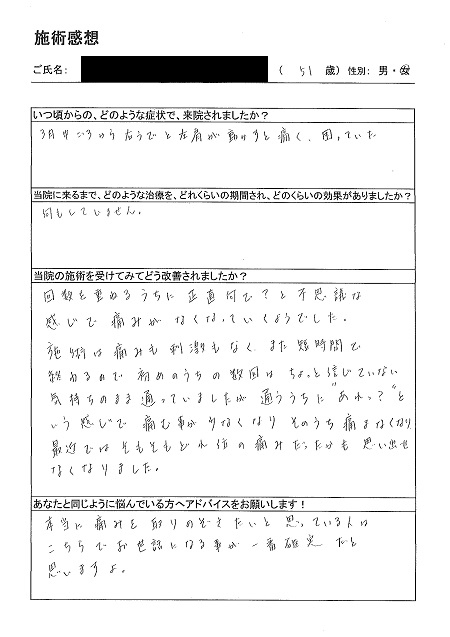 施術感想
ご氏名： （ 51 歳） 性別： 男・女
いつ頃からの、どのような症状で、来院されましたか？
3月中ごろから右うでと左肩が動かすと痛く、困っていた
当院に来るまで、どのような治療を、どれくらいの期間され、どのくらいの効果がありましたか？
何もしてしません。
当院の施術を受けてみてどう改善されましたか？
回数を重ねるうちに正直何で？と不思議な
感じで痛みがなくなっていくようでした。
施術は痛みも刺激もなく、また短時間で
終わるので初めのうちの数回はちょっと信じていない
気持ちのまま通っていましたが通ううちに"あれっ？"と
いう感じで痛む事が少なくなりそのうち痛まなくなり
最近ではそもそもどれ位の痛みだったかも思い出せ
なくなりました。
あなたと同じように悩んでいる方へアドバイスをお願いします！
本当に痛みを取りのぞきたいと思っている人は
こちらでお世話になる事が一番確実だと
思いますよ。